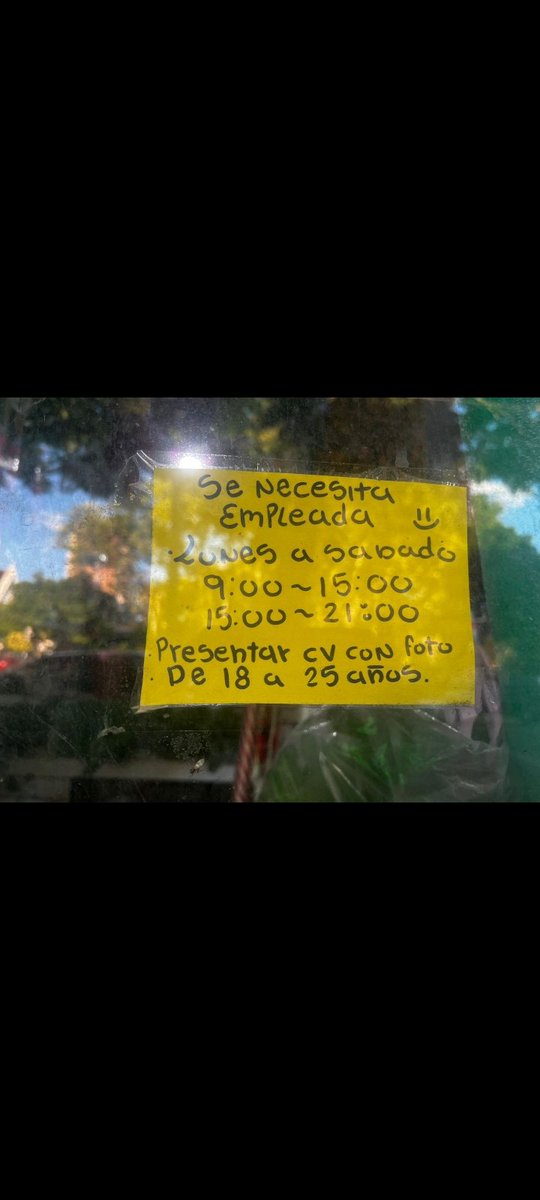 Se Necesita
Empleada =)
·Lunes a sabado
9:00~15:00
15:00~21:00
·Presentar cv con foto
·De 18 a 25 años.